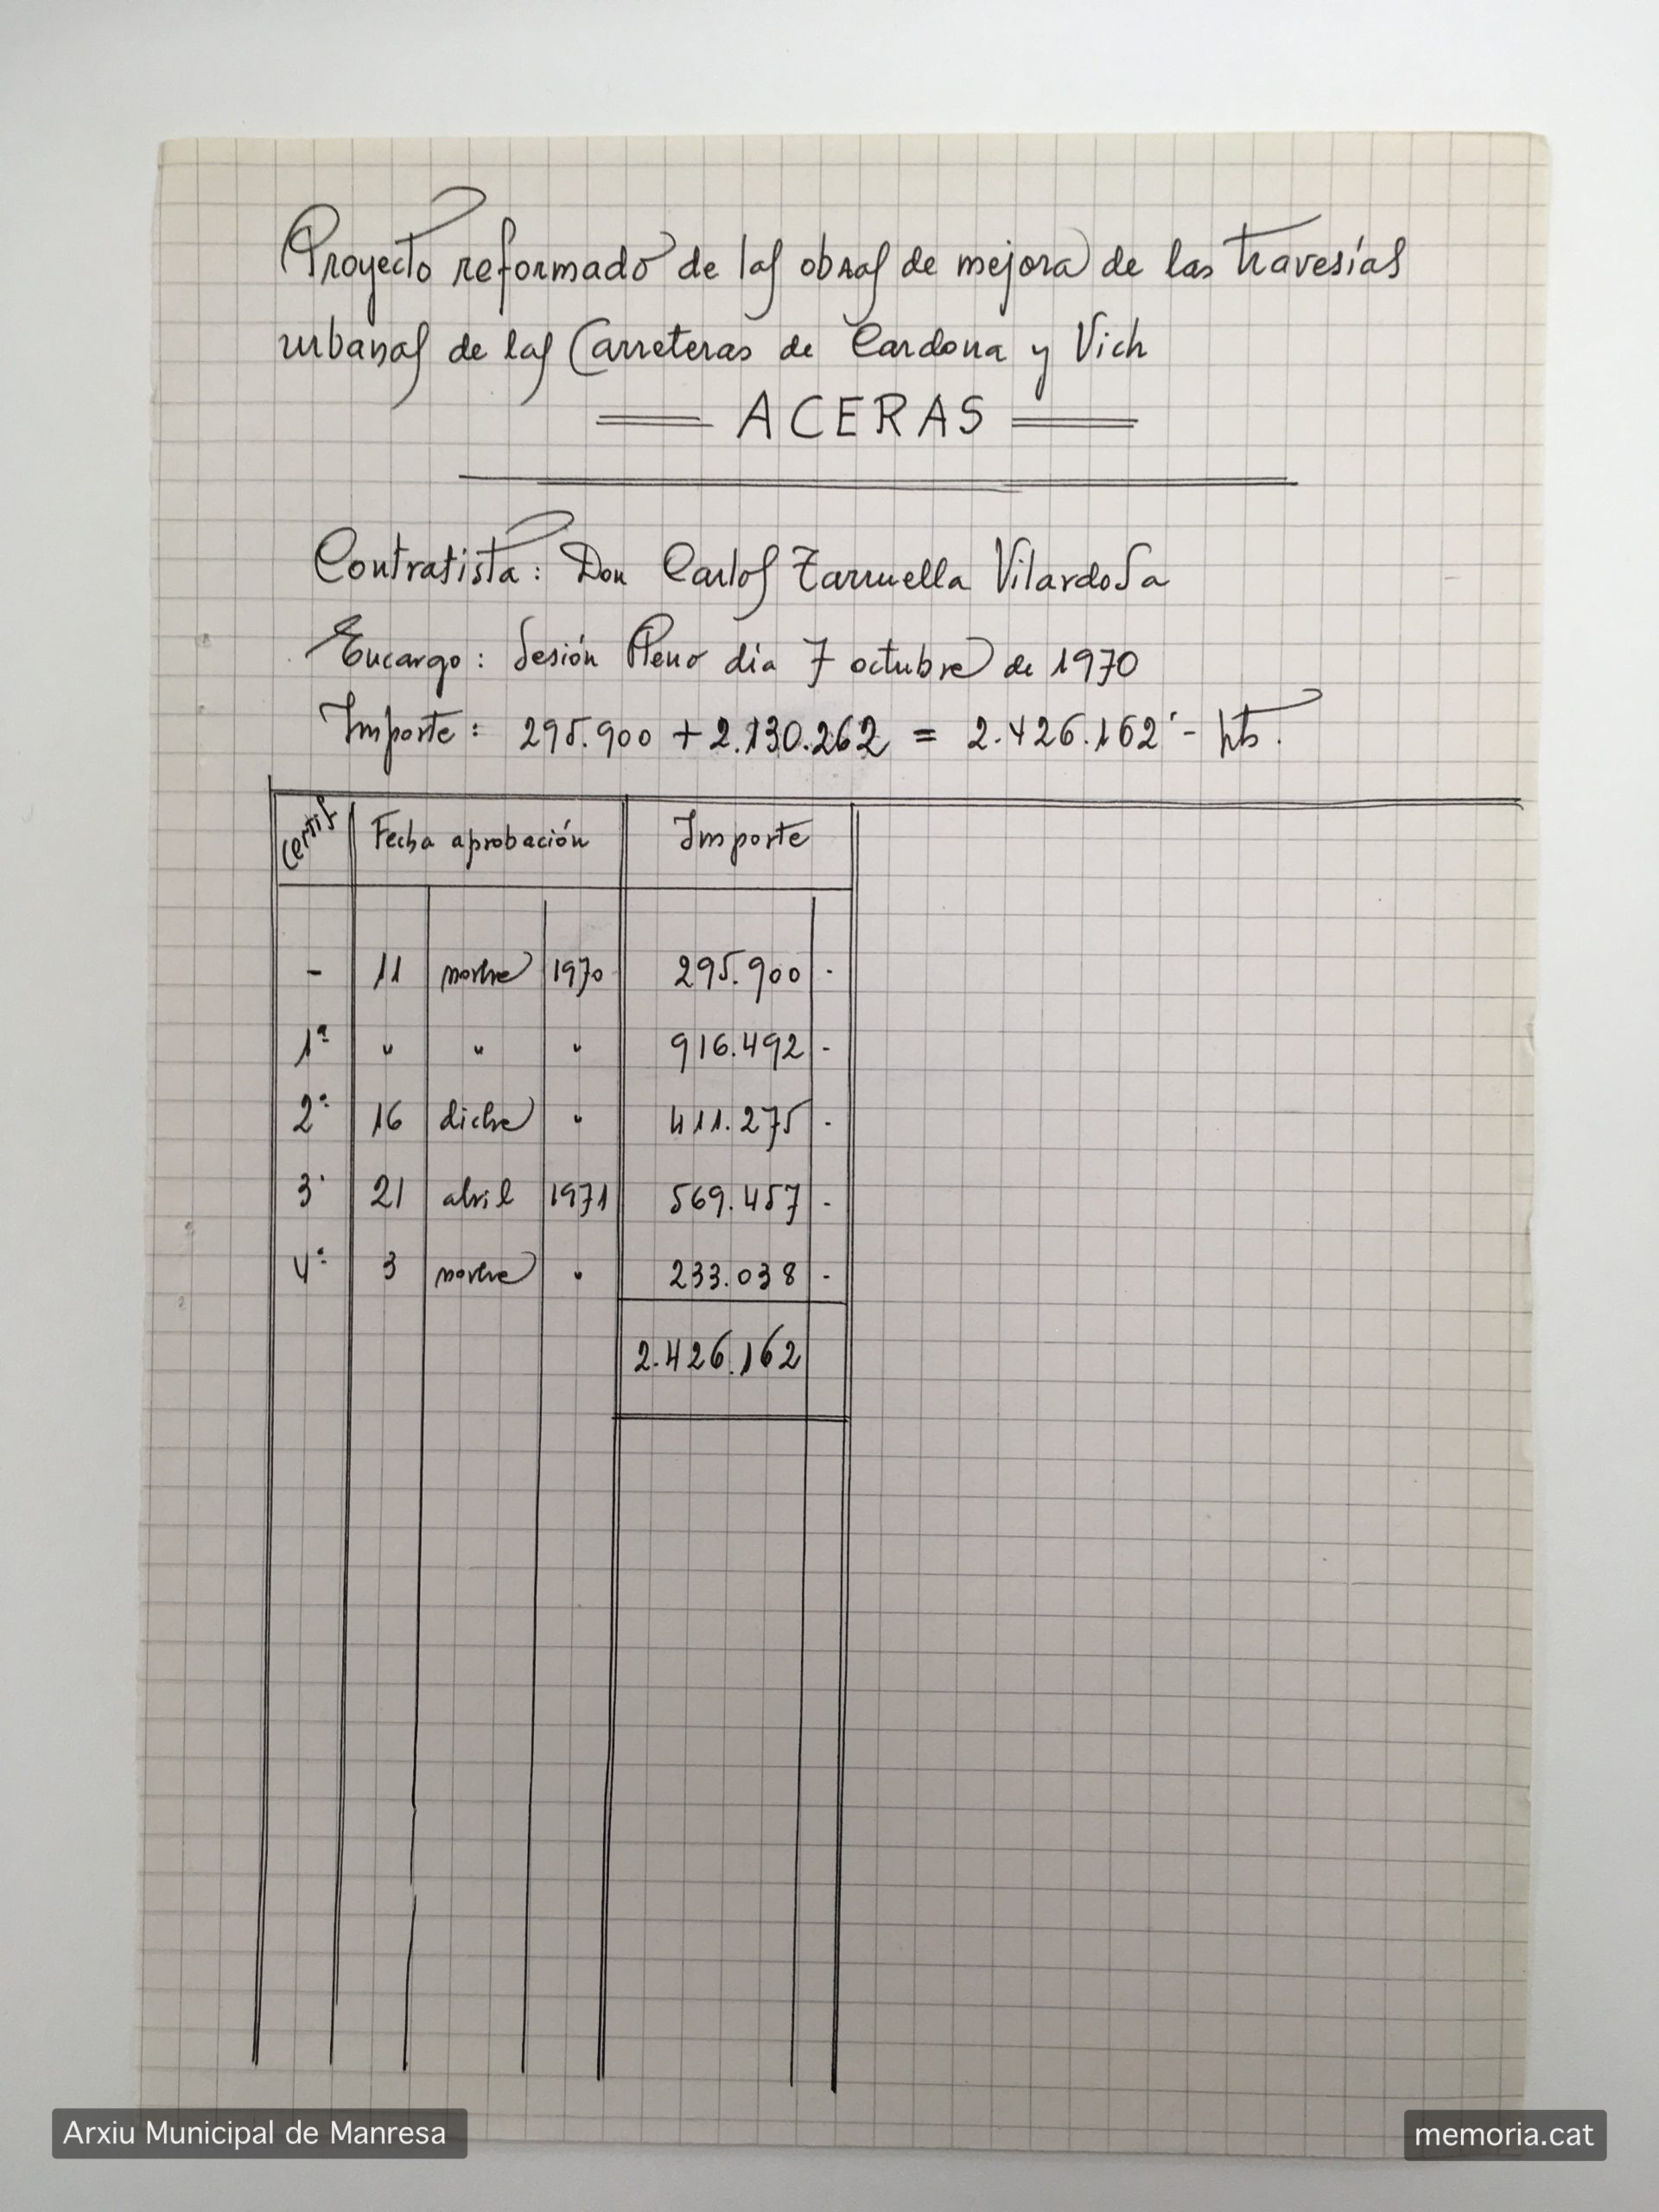 Proyecto reformado de las obras de mejora de las travesías
urbanas de las Carreteras de Cardona y Vich
ACERAS
Contratista: Don Carlos Tarruella Vilardosa
Encargo: Sesión Pleno dia 7 octubre de 1970
Importe: 295.900 + 2.130.262 = 2.426.162'- pts.
Certif Fecha aprobación Importe
- 11 novbre 1970 295.900 -
1ª " " " 916.492 -
2ª 16 dicbre " 411.275 -
3ª 21 abril 1971 569.457 -
4ª 3 novbre " 233.038 -
2.426.162
Arxiu Municipal de Manresa
memoria.cat